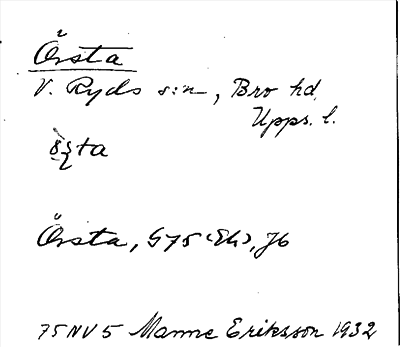 Örsta
V. Ryds s:n, Bro hd,
Upps. l.
Örsta, G 75 (Ek), Jb
75 NV 5 Manne Eriksson 1932